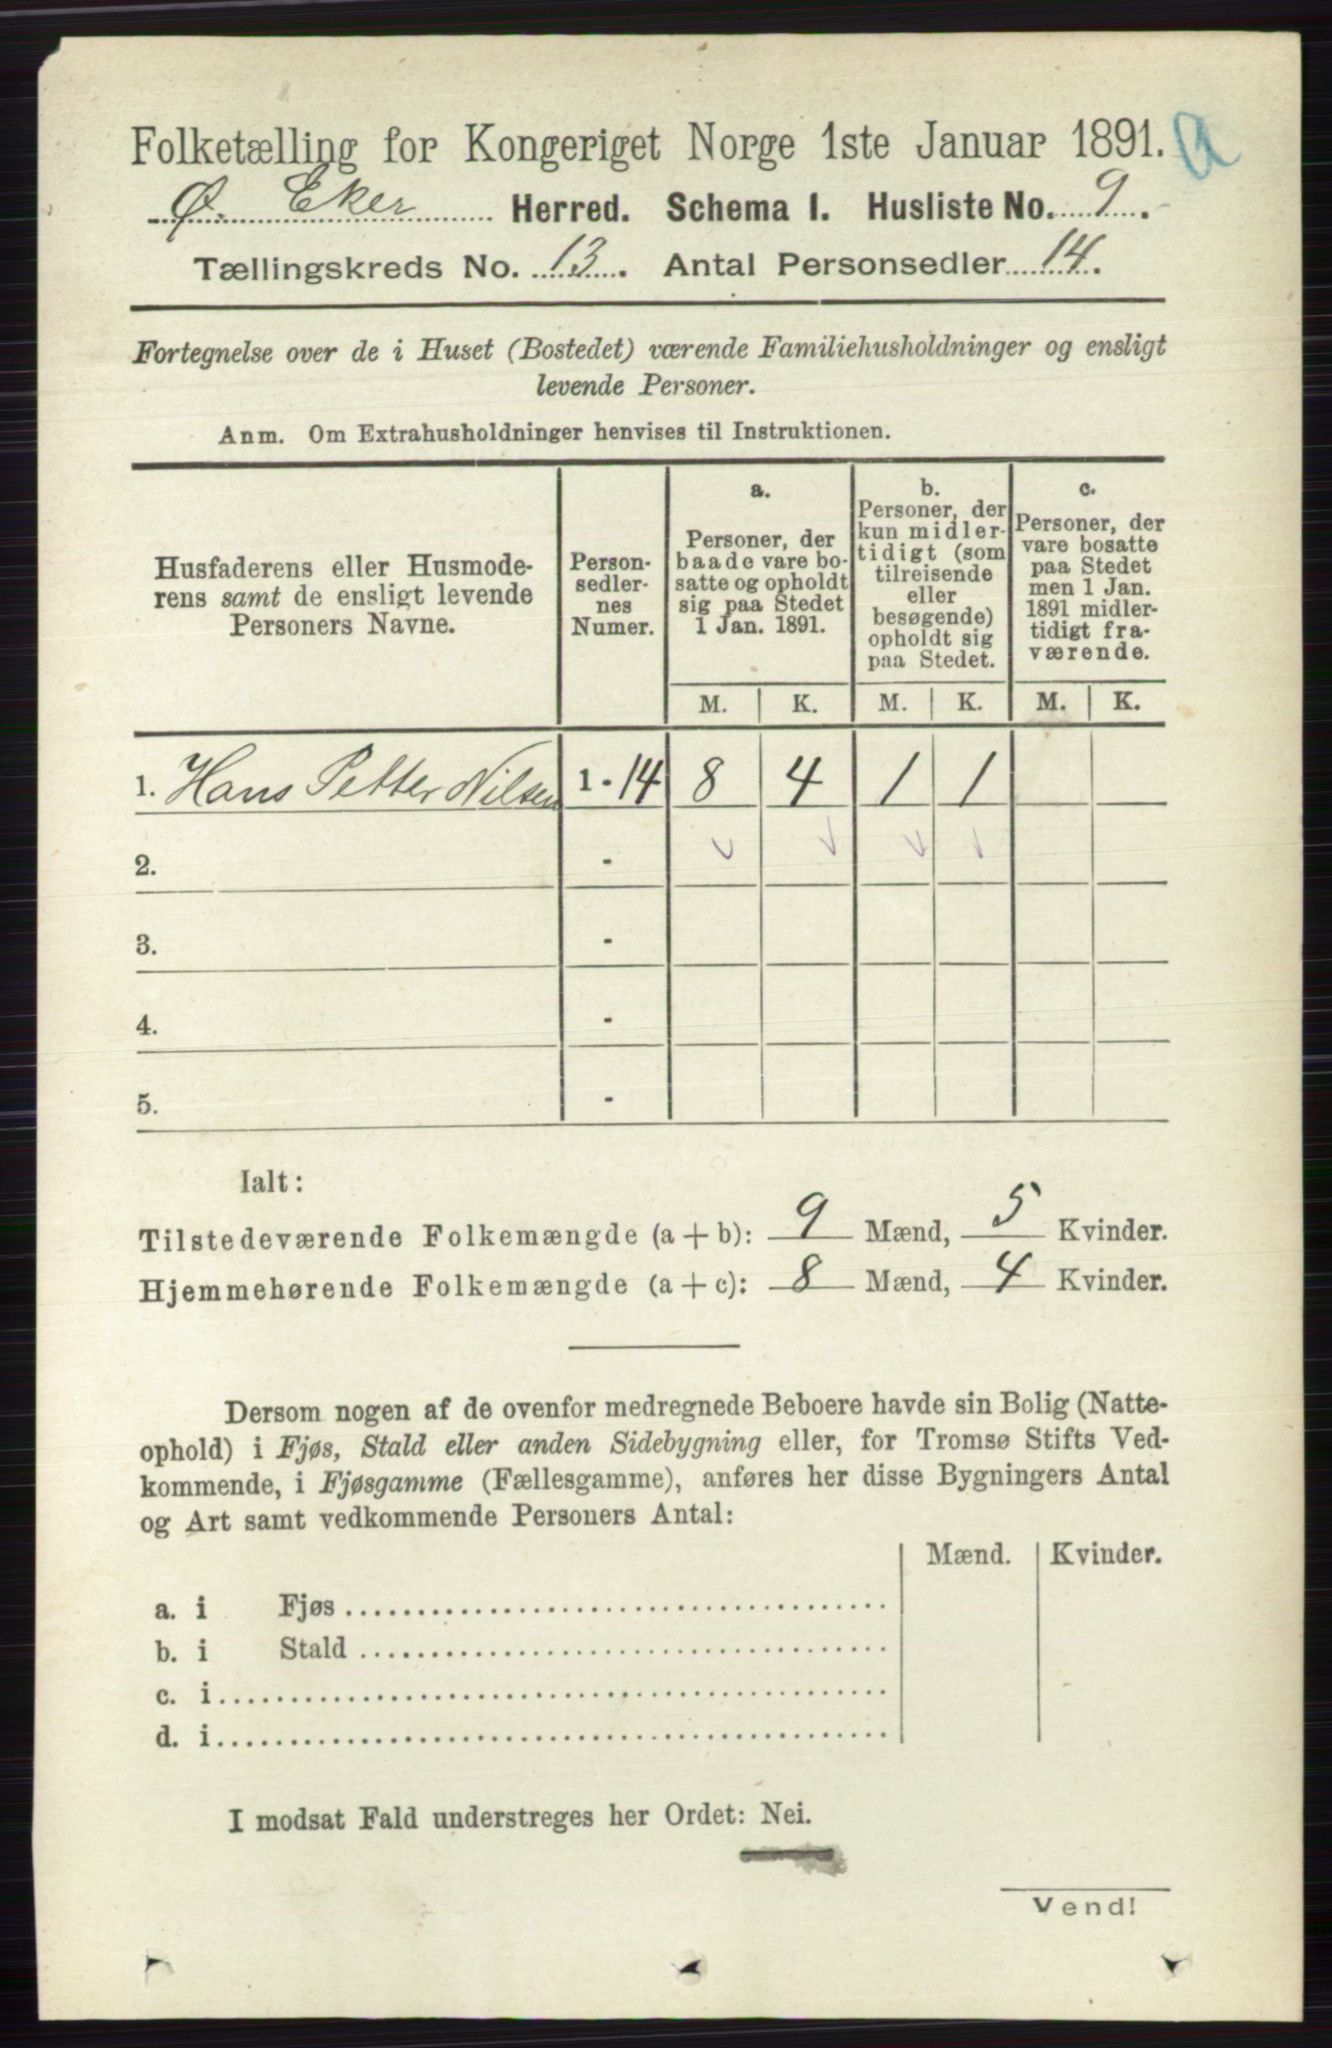 Folketælling for Kongeriget Norge 1ste Januar 1891. a
Ø. Eker Herred. Schema I. Husliste No. 9.
Tællingskreds No. 13. Antal Personsedler 14.
Fortegnelse over de i Huset (Bostedet) værende Familiehusholdninger og ensligt
levende Personer.
Anm. Om Extrahusholdninger henvises til Instruktionen.
Husfaderens eller Husmode-
rens samt de ensligt levende
Personers Navne.
Person-
sedler-
nes
Numer.
a.
Personer, der
baade vare bo-
satte og opholdt
sig paa Stedet
1 Jan. 1891.
b.
Personer, der
kun midler-
tidigt (som
tilreisende
eller
besøgende)
opholdt sig
paa Stedet.
c.
Personer, der
vare bosatte
paa Stedet
men 1 Jan.
1891 midler-
tidigt fra-
værende.
M. K. M. K. M. K.
1. Hans Petter Nilsen 1 - 14 8 4 1 1
2. -
3. -
4. -
5. -
Ialt:
Tilstedeværende Folkemængde (a + b): 9 Mænd, 5 Kvinder.
Hjemmehørende Folkemængde (a + c): 8 Mænd, 4 Kvinder.
Dersom nogen af de ovenfor medregnede Beboere havde sin Bolig (Natte-
ophold) i Fjøs, Stald eller anden Sidebygning eller, for Tromsø Stifts Ved-
kommende, i Fjøsgamme (Fællesgamme), anføres her disse Bygningers Antal
og Art samt vedkommende Personers Antal:
Mænd. Kvinder.
a. i Fjøs
b. i Stald
c. i
d. i
I modsat Fald understreges her Ordet: Nei.
Vend!